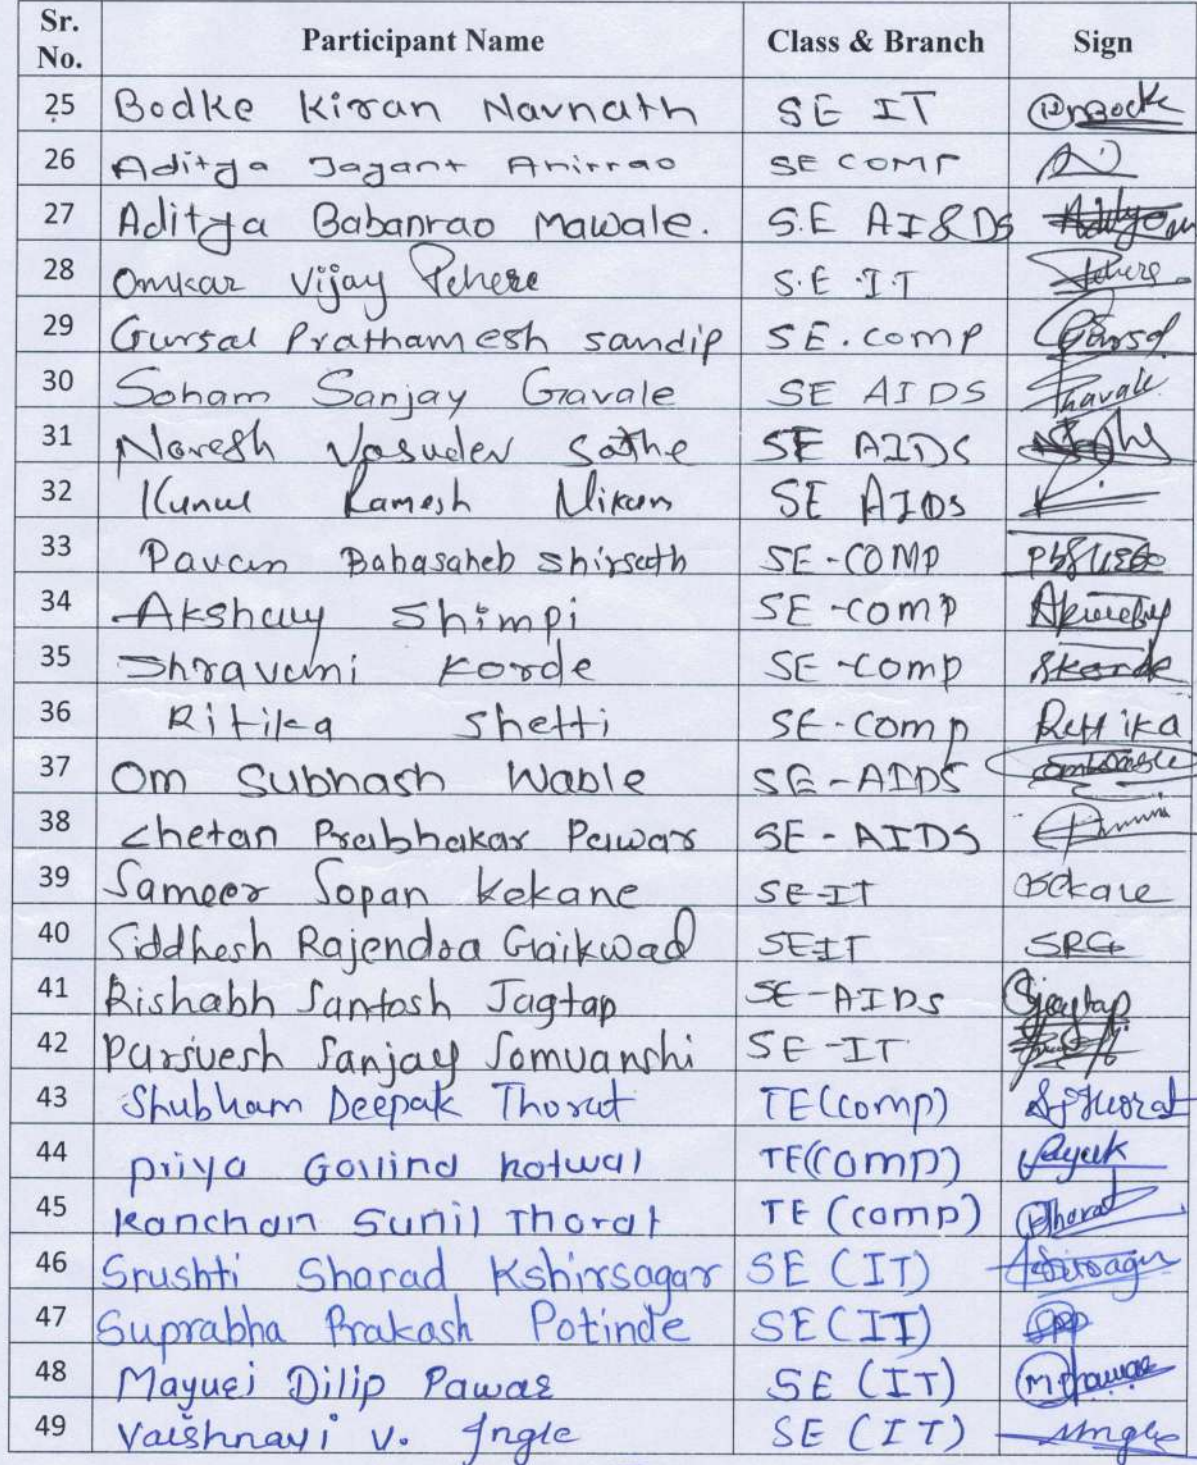 Sr. No. Participant Name Class & Branch Sign
25 Bodke Kiran Navnath SE IT
26 Aditya Jayant Ahirrao SE COMP
27 Aditya Babanrao Mawale. S.E AI&DS
28 Omkar Vijay Pehere S.E I.T
29 Gursal Prathamesh sandip SE.comp
30 Soham Sanjay Gavale SE AIDS
31 Naresh Vasudev Sathe SE AIDS
32 Kunal Ramesh Nikam SE AIDS
33 Pavan Babasaheb Shirsath SE-COMP
34 Akshay Shimpi SE-comp
35 Shravani Korde SE-comp Skorde
36 Ritika Shetti SE-comp
37 Om Subhash Wable SE-AIDS
38 Chetan Prabhakar Pawar SE-AIDS
39 Sameer Sopan Kekane SE-IT
40 Siddhesh Rajendra Gaikwad SEIT SRG
41 Rishabh Santosh Jagtap SE-AIDS
42 Parsvesh Sanjay Somvanshi SE-IT
43 Shubham Deepak Thorat TE(comp)
44 priya Govind kotwal TE(comp)
45 Kanchan Sunil Thorat TE (comp)
46 Srushti Sharad Kshirsagar SE (IT)
47 Suprabha Prakash Potinde SE (IT)
48 Mayuri Dilip Pawar SE (IT)
49 Vaishnavi V. Ingle SE (IT)